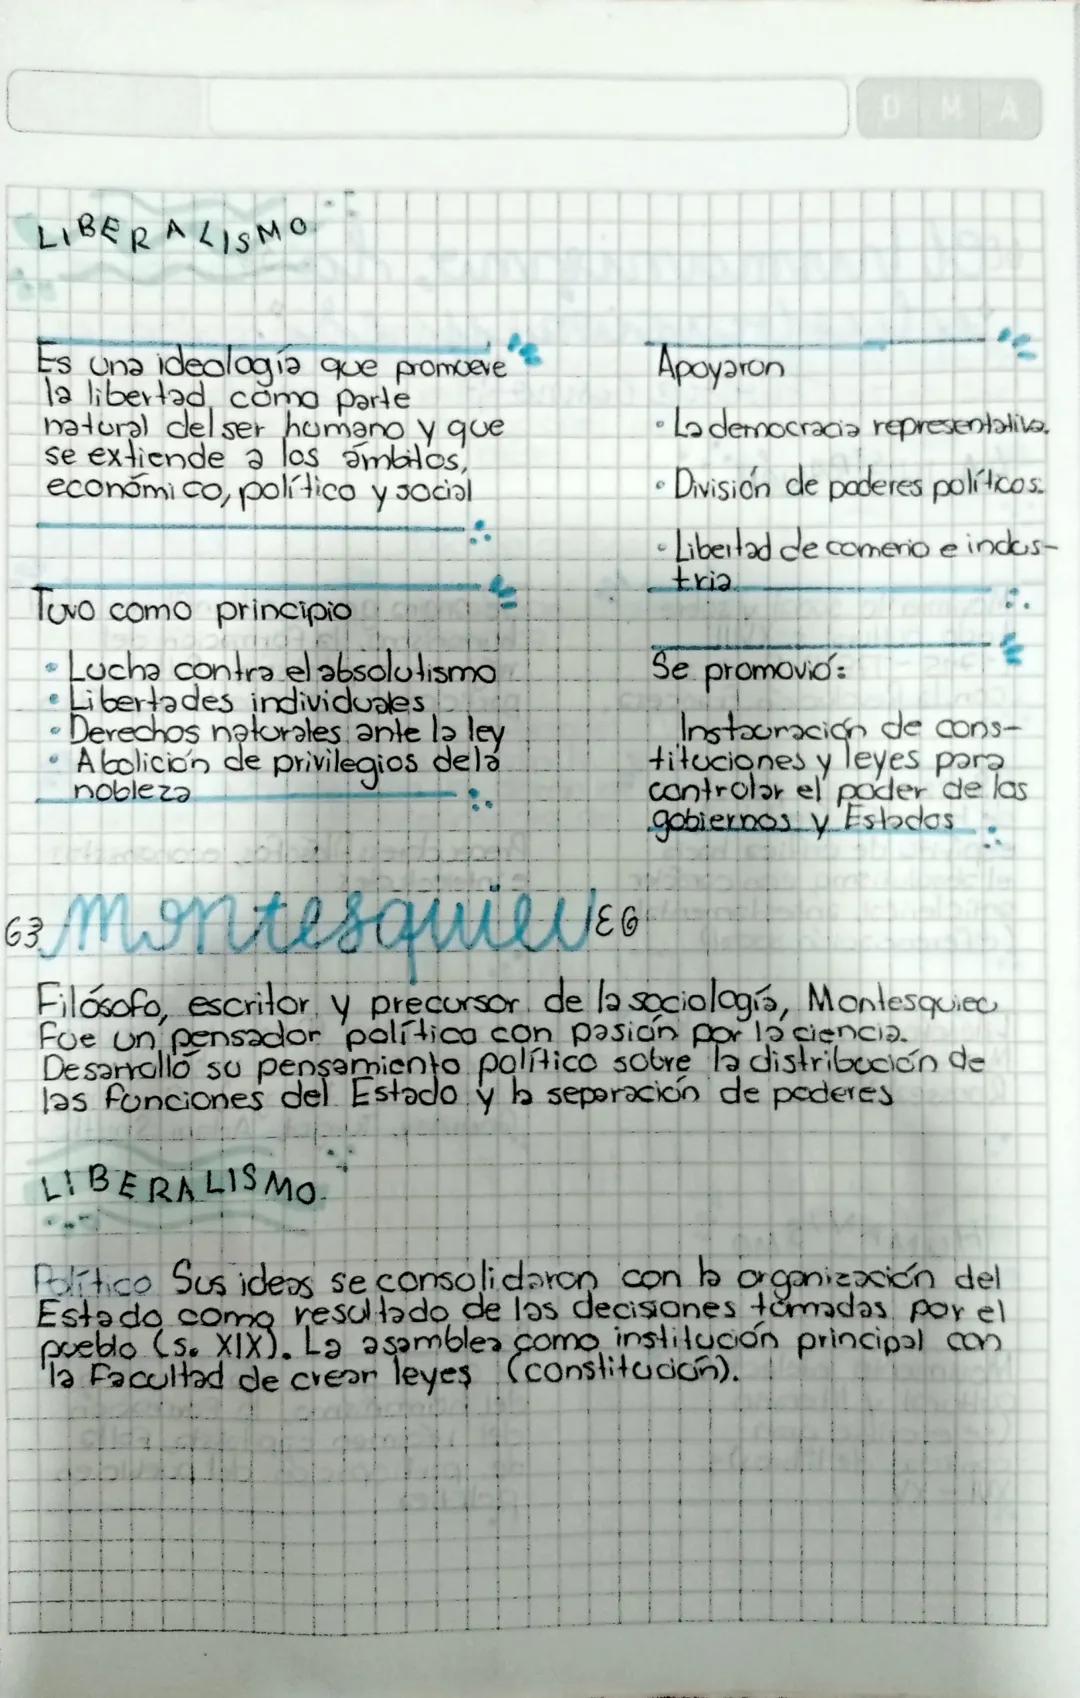 D M A
LIBERALISMO
Es una ideología que promueve
la libertad como parte
natural del ser humano y que
se extiende a los ámbitos,
económico, político y social
Tuvo como principio
• Lucha contra el absolutismo
• Libertades individuales
• Derechos naturales ante la ley
• Abolición de privilegios dela
nobleza
Apoyaron
• La democracia representativa.
• División de poderes políticos.
• Libertad de comerio e indus-
tria
Se promovió:
Instauración de cons-
tituciones y leyes para
controlar el poder de los
gobiernos y Estados
63 Montesquieu EG
Filósofo, escritor y precursor de la sociología, Montesquieu
Fue un pensador político con pasión por la ciencia.
Desarrolló su pensamiento político sobre la distribución de
las funciones del Estado y la separación de poderes
LIBERALISMO
Político Sus ideas se consolidaron con la organización del
Estado como resultado de las decisiones tomadas por el
pueblo (s. XIX). La asamblea como institución principal con
la Facultad de crear leyes (constitución).